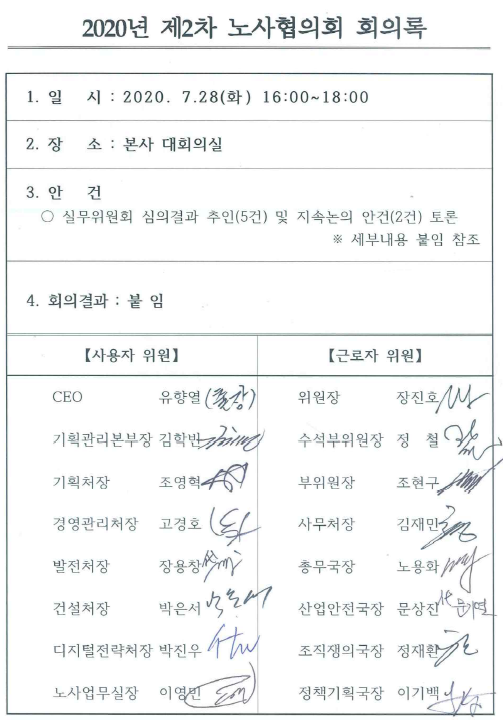 2020년 제2차 노사협의회 회의록
1. 일 시 : 2020. 7.28(화) 16:00~18:00
2. 장 소 : 본사 대회의실
3. 안 건
○ 실무위원회 심의결과 추인(5건) 및 지속논의 안건(2건) 토론
※ 세부내용 붙임 참조
4. 회의결과 : 붙 임
【사용자 위원】 【근로자 위원】
CEO 유향열 위원장 장진호
기획관리본부장 김학빈 수석부위원장 정 철
기획처장 조영혁 부위원장 조현구
경영관리처장 고경호 사무처장 김재민
발전처장 장용창 총무국장 노용화
건설처장 박은서 산업안전국장 문상진
디지털전략처장 박진우 조직쟁의국장 정재환
노사업무실장 이영민 정책기획국장 이기백